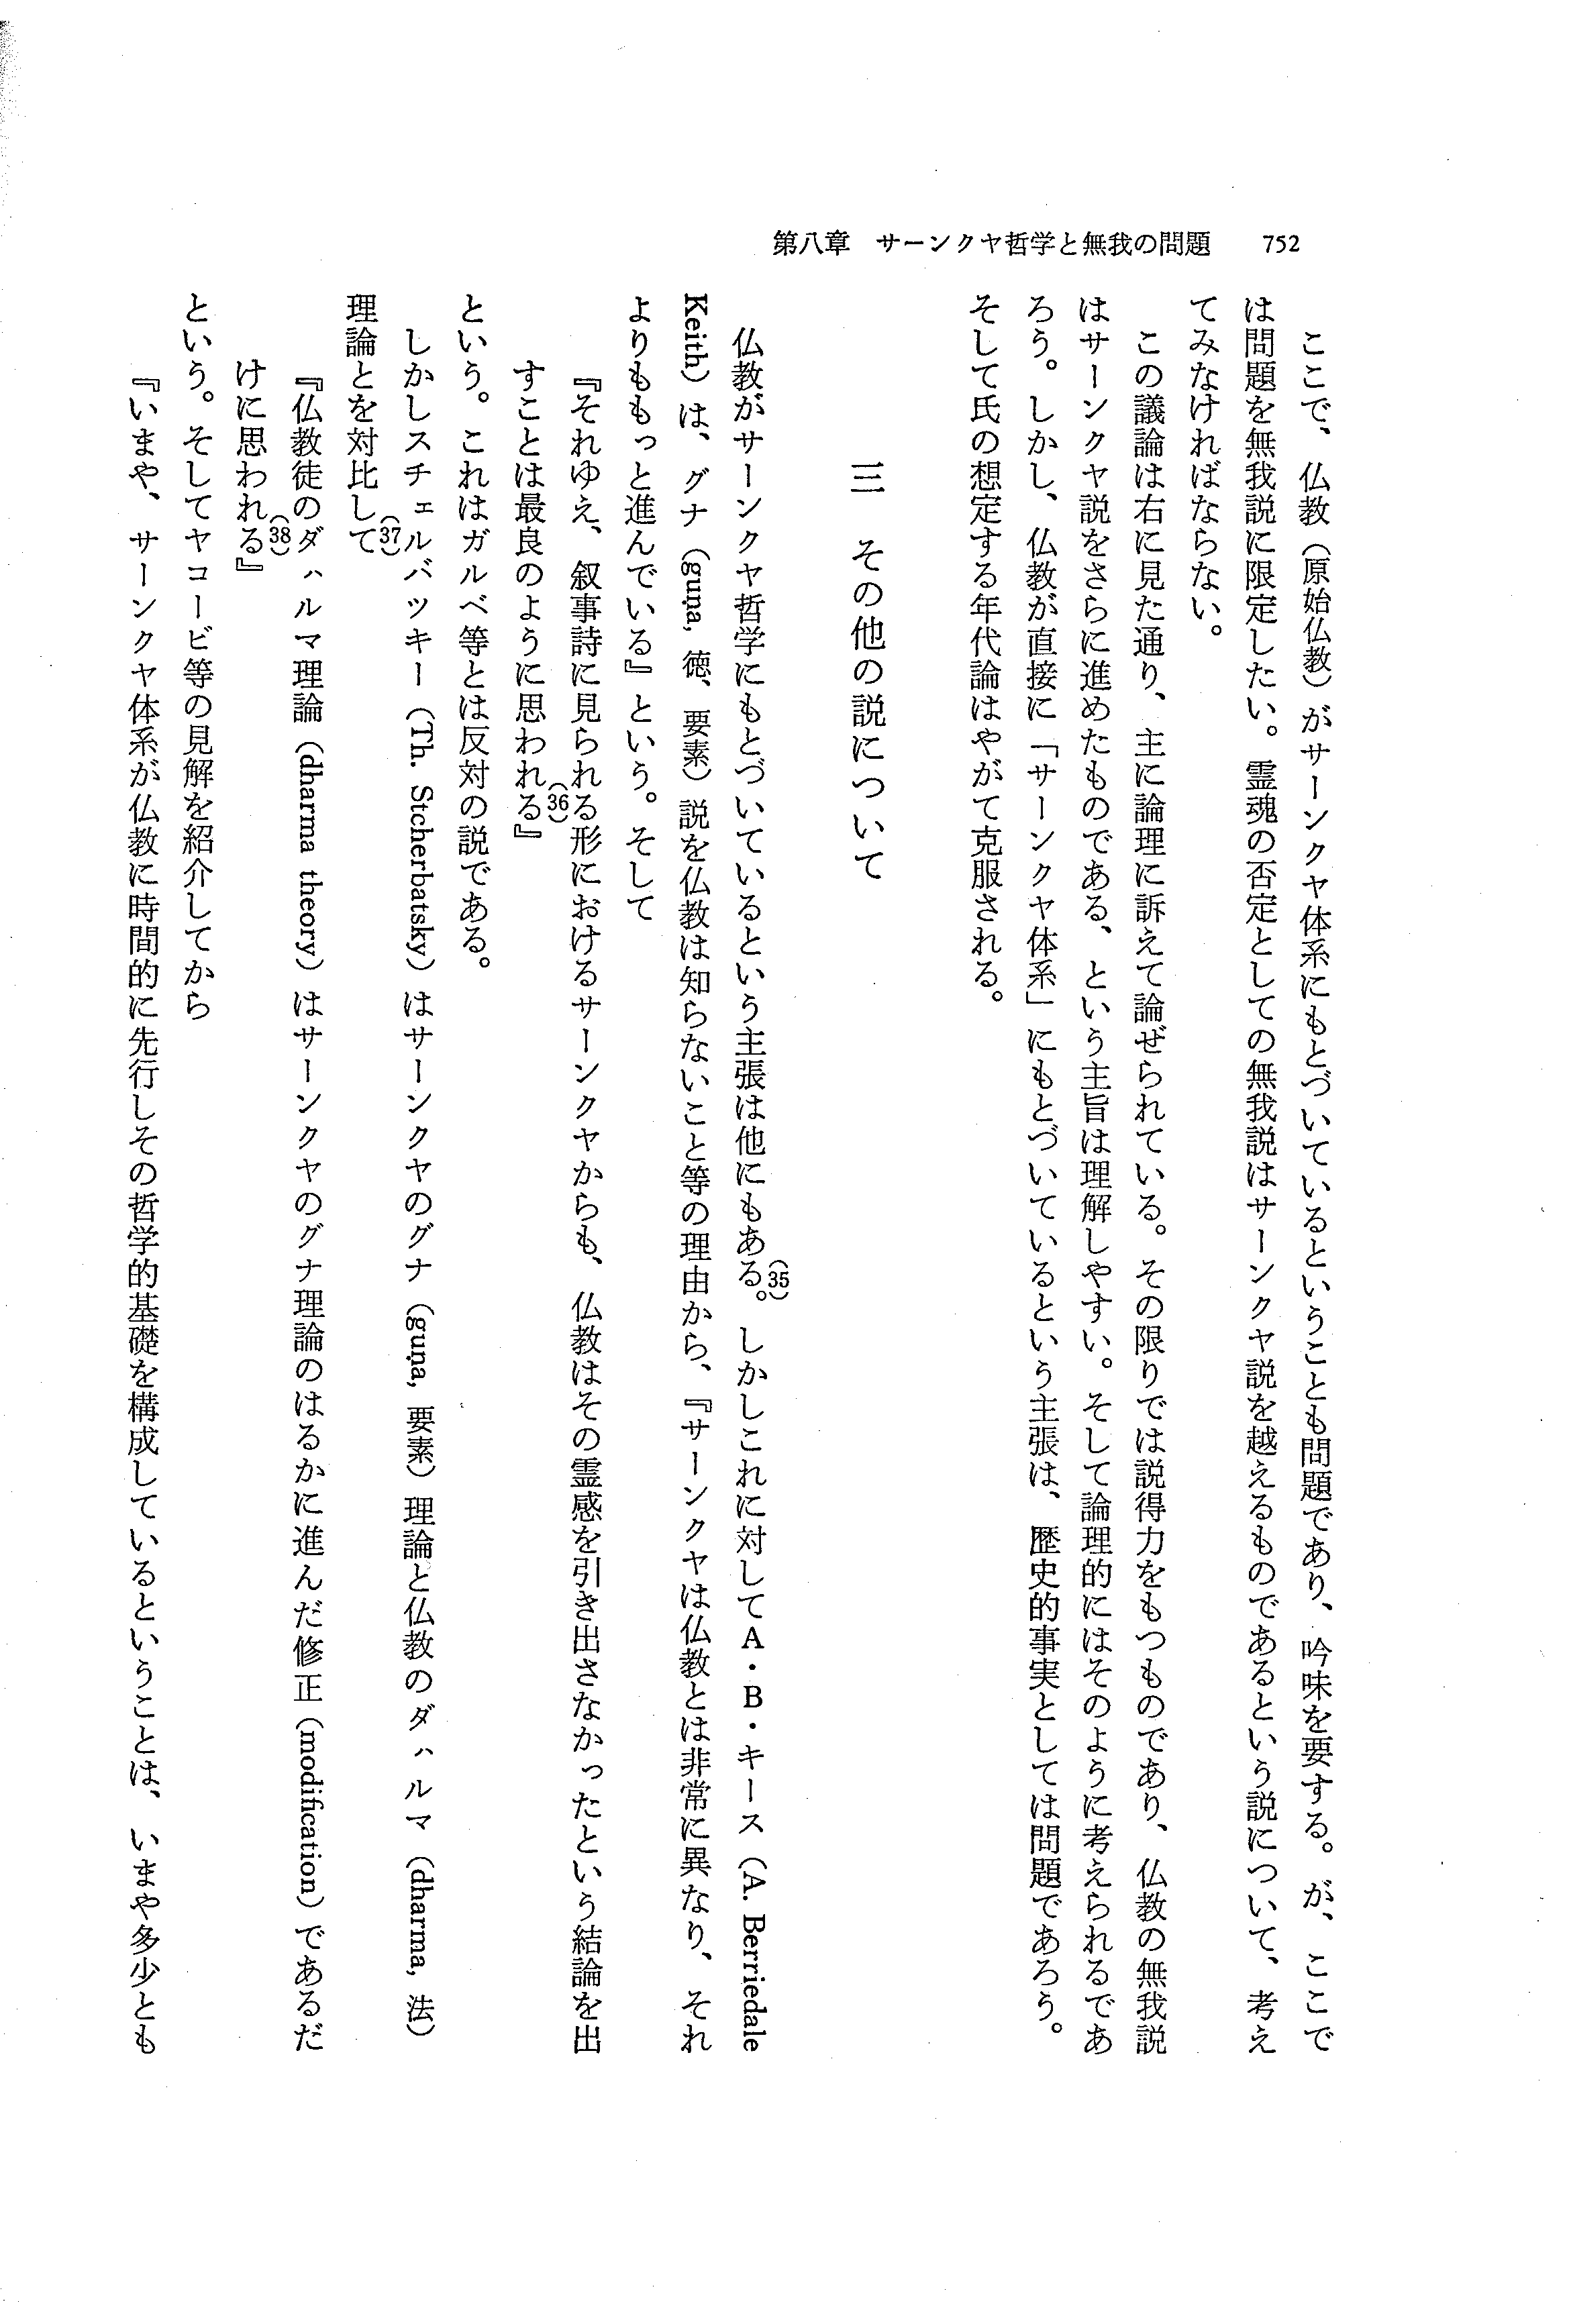 第八章　サーンクヤ哲学と無我の問題　752
ここで、仏教（原始仏教）がサーンクヤ体系にもとづいているということも問題であり、吟味を要する。が、ここで
は問題を無我説に限定したい。霊魂の否定としての無我説はサーンクヤ説を越えるものであるという説について、考え
てみなければならない。
この議論は右に見た通り、主に論理に訴えて論ぜられている。その限りでは説得力をもつものであり、仏教の無我説
はサーンクヤ説をさらに進めたものである、という主旨は理解しやすい。そして論理的にはそのように考えられるであ
ろう。しかし、仏教が直接に「サーンクヤ体系」にもとづいているという主張は、歴史的事実としては問題であろう。
そして氏の想定する年代論はやがて克服される。
三　その他の説について
仏教がサーンクヤ哲学にもとづいているという主張は他にもある(35)。しかしこれに対してA・B・キース（A. Berriedale
Keith）は、グナ（guṇa, 徳、要素）説を仏教は知らないこと等の理由から、『サーンクヤは仏教とは非常に異なり、それ
よりももっと進んでいる』という。そして
『それゆえ、叙事詩に見られる形におけるサーンクヤからも、仏教はその霊感を引き出さなかったという結論を出
すことは最良のように思われる(36)』
という。これはガルベ等とは反対の説である。
しかしスチェルバツキー（Th. Stcherbatsky）はサーンクヤのグナ（guṇa, 要素）理論と仏教のダハルマ（dharma, 法）
理論とを対比して(37)
『仏教徒のダハルマ理論（dharma theory）はサーンクヤのグナ理論のはるかに進んだ修正（modification）であるだ
けに思われる(38)』
という。そしてヤコービ等の見解を紹介してから
『いまや、サーンクヤ体系が仏教に時間的に先行しその哲学的基礎を構成しているということは、いまや多少とも